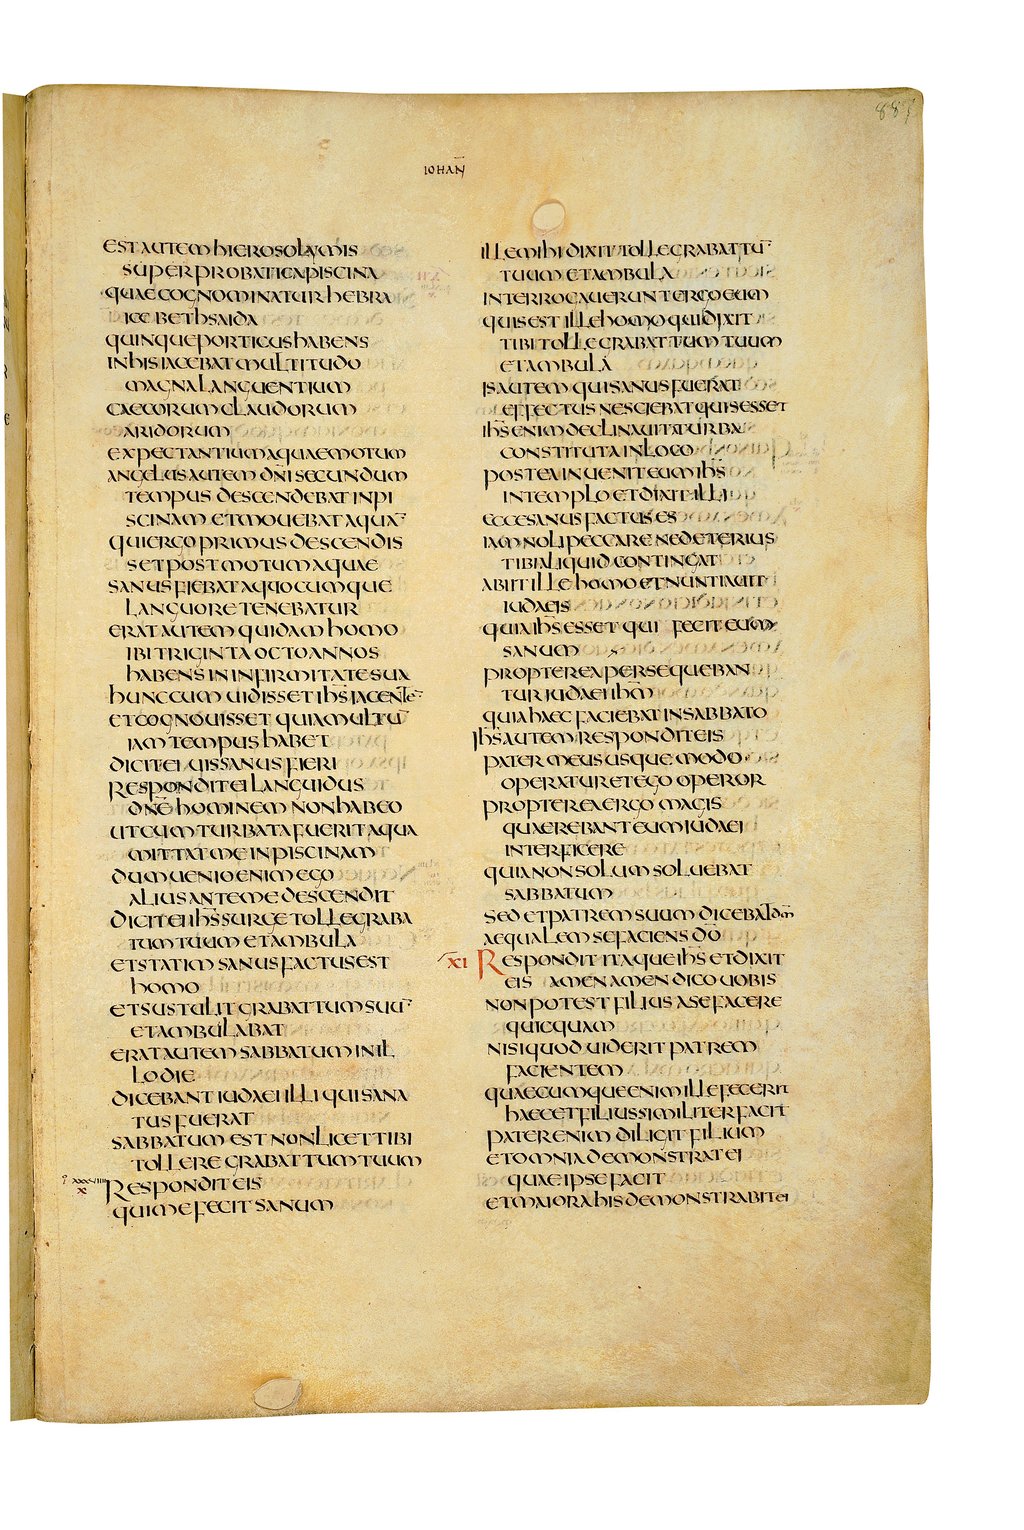 887
IOHAN̄
EST AUTEM HIEROSOLYMIS
SUPER PROBATICA PISCINA
QUAE COGNOMINATUR HEBRA
ICE BETHSAIDA
QUINQUE PORTICUS HABENS
IN HIS IACEBAT MULTITUDO
MAGNA LANGUENTIUM
CAECORUM CLAUDORUM
ARIDORUM
EXPECTANTIUM AQUAE MOTUM
ANGELUS AUTEM DN̄I SECUNDUM
TEMPUS DESCENDEBAT IN PI
SCINAM ET MOUEBAT AQUA¯
QUI ERGO PRIMUS DESCENDIS
SET POST MOTUM AQUAE
SANUS FIEBAT A QUOCUMQUE
LANGUORE TENEBATUR
ERAT AUTEM QUIDAM HOMO
IBI TRIGINTA OCTO ANNOS
HABENS IN INFIRMITATE SUA
HUNC CUM UIDISSET IH̄S IACENTE¯
ET COGNOUISSET QUIA MULTU¯
IAM TEMPUS HABET
DICIT EI UIS SANUS FIERI
RESPONDIT EI LANGUIDUS
DN̄E HOMINEM NON HABEO
UT CUM TURBATA FUERIT AQUA
MITTAT ME IN PISCINAM
DUM UENIO ENIM EGO
ALIUS ANTE ME DESCENDIT
DICIT EI IH̄S SURGE TOLLE GRABA
TUM TUUM ET AMBULA
ET STATIM SANUS FACTUS EST
HOMO
ET SUSTULIT GRABATTUM SUU¯
ET AMBULABAT
ERAT AUTEM SABBATUM IN IL
LO DIE
DICEBANT IUDAEI ILLI QUI SANA
TUS FUERAT
SABBATUM EST NON LICET TIBI
TOLLERE GRABATTUM TUUM
XXXVIIII
X
RESPONDIT EIS
QUI ME FECIT SANUM
ILLE MIHI DIXIT TOLLE GRABATTU¯
TUUM ET AMBULA
INTERROGAUERUNT ERGO EUM
QUIS EST ILLE HOMO QUI DIXIT
TIBI TOLLE GRABATTUM TUUM
ET AMBULA
IS AUTEM QUI SANUS FUERAT
EFFECTUS NESCIEBAT QUIS ESSET
IH̄S ENIM DECLINAUIT A TURBA
CONSTITUTA IN LOCO
POSTEA INUENIT EUM IH̄S
IN TEMPLO ET DIXIT ILLI
ECCE SANUS FACTUS ES
IAM NOLI PECCARE NE DETERIUS
TIBI ALIQUID CONTINGAT
ABIIT ILLE HOMO ET NUNTIAUIT
IUDAEIS
QUIA IH̄S ESSET QUI FECIT EUM
SANUM
PROPTEREA PERSEQUEBAN
TUR IUDAEI IH̄M
QUIA HAEC FACIEBAT IN SABBATO
IH̄S AUTEM RESPONDIT EIS
PATER MEUS USQUE MODO
OPERATUR ET EGO OPEROR
PROPTEREA ERGO MAGIS
QUAEREBANT EUM IUDAEI
INTERFICERE
QUIA NON SOLUM SOLUEBAT
SABBATUM
SED ET PATREM SUUM DICEBAT D̄M
AEQUALEM SE FACIENS D̄O
XI RESPONDIT ITAQUE IH̄S ET DIXIT
EIS AMEN AMEN DICO UOBIS
NON POTEST FILIUS A SE FACERE
QUICQUAM
NISI QUOD UIDERIT PATREM
FACIENTEM
QUAECUMQUE ENIM ILLE FECERIT
HAEC ET FILIUS SIMILITER FACIT
PATER ENIM DILIGIT FILIUM
ET OMNIA DEMONSTRAT EI
QUAE IPSE FACIT
ET MAIORA HIS DEMONSTRABIT EI